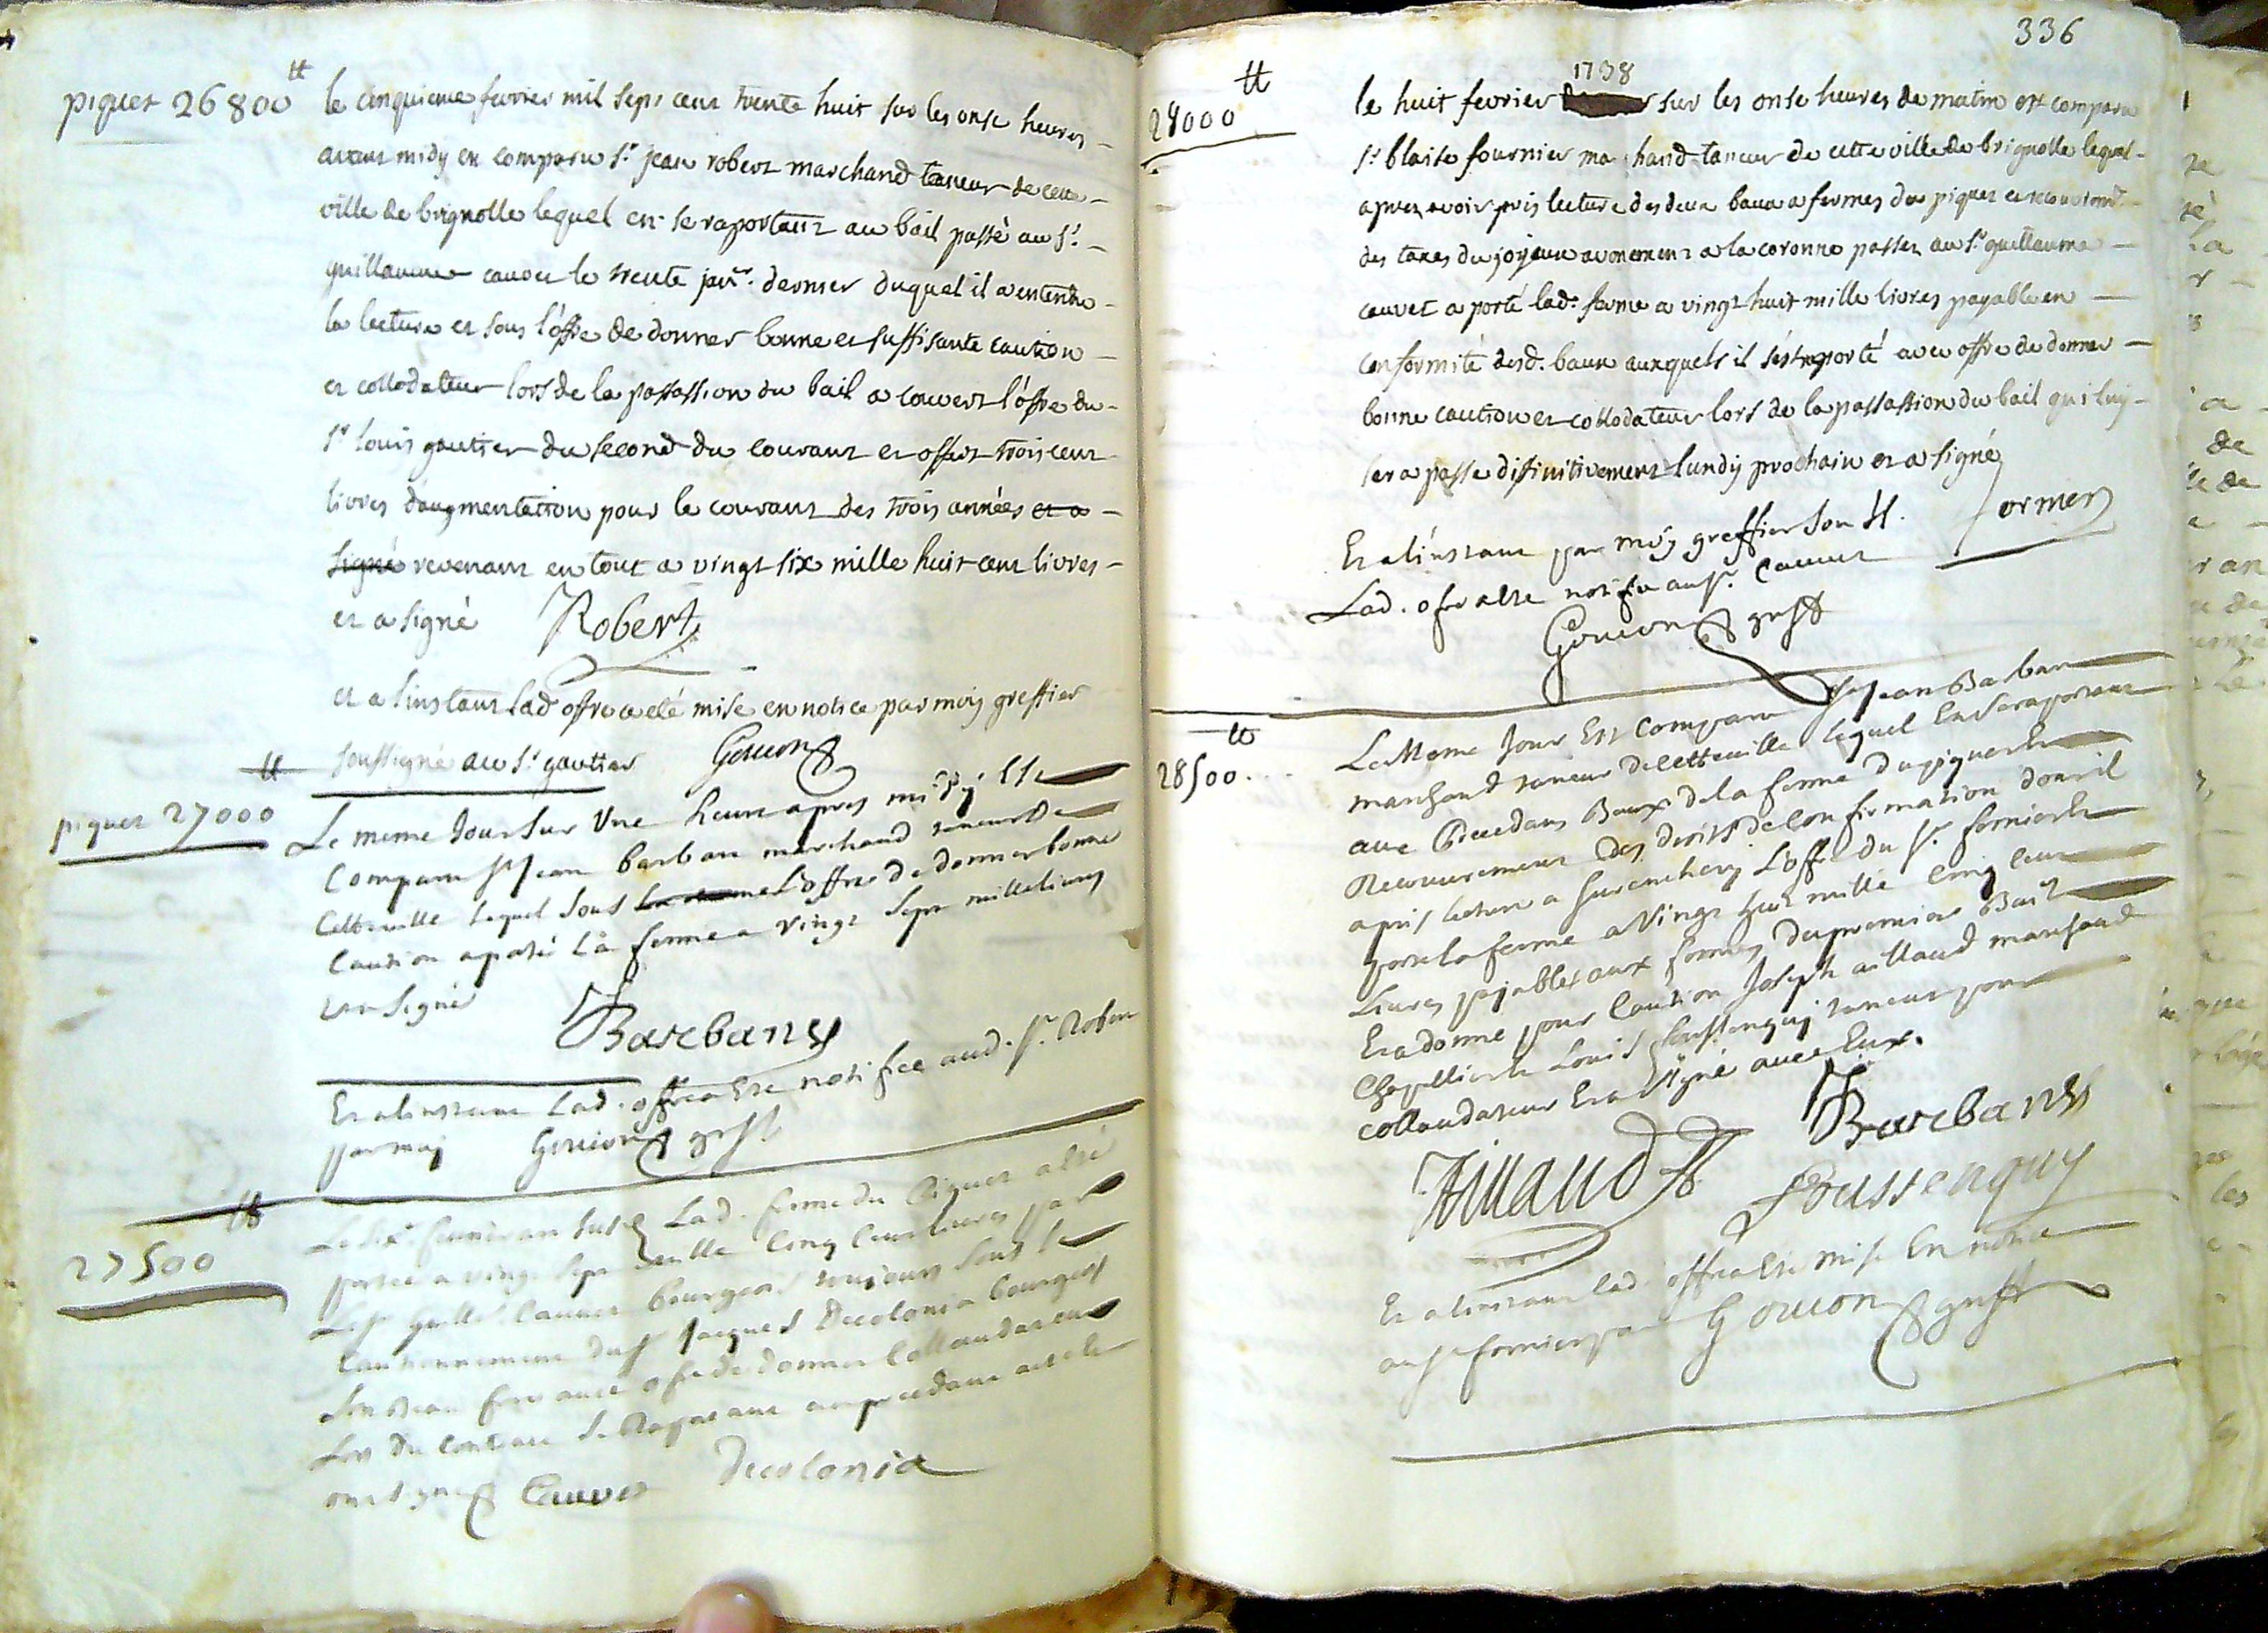 piquet 26800 tt
le cinquieme fevrier mil sept cent trente huit sur les onse heures
avant midy est comparu Sr jean robert marchand taneur de cette
ville de brignolle lequel en se raportant au bail passé au Sr
guillaume cauvet le trente janr. dernier duquel il a entendu
la lecture et sous l'offre de donner bonne et suffisante caution
et collodateur lors de la passassion du bail a couvert l'offre du
Sr louis gautier du second du courant et offert trois cent
livres d'augmentation pour le courant des trois années et a
signé revenant en tout a vingt six mille huit cent livres
et a signé Robert
et a l'instant lad offre a eté mise en notice par moy greffier
soussigné au Sr gautier Gouion
piquet 27000 tt
Le meme Jour sur Une heure apres midy Est
Comparu Sr Jean barbaru marchand taneur De
Cette ville lequel sous L'offre de donner bonne
Caution a porté La ferme a vingt Sept mille livres
et a Signé Barbaru
Et a linstant Lad. offre a Ete notifiee aud. Sr. Robert
par moy Gouion greff
27500 tt
Le six fevrier an susd Lad. ferme du Piquet a ete
portée a vingt Sept mille Cinq Cent livres par
Le Sr Guille. Cauvet bourgeois toujours sous le
Cautionnement du Sr Jacques Decolonia bourgeois
son beau frere avec offre de donner Collaudateur
Lors du Contract se Raportant au precedant acte et
ont signé Cauvet Decolonia
336
28000 tt
le huit fevrier 1738 sur les onse heures de matin est comparu
Sr blaise fournier marchand taneur de cette ville de brignolle lequel
apres avoir pris lecture des deux baux a fermes du piquet et recouvremt
des taxes du joyeux avenement a la coronne passez au Sr guillaume
cauvet a porté lad. ferme a vingt huit mille livres payable en
conformité desd. baux auxquels il s'est raporté avec offre de donner
bonne caution et collodateur lors de la passassion du bail qui luy
sera passé diffinitivement lundy prochain et a signé
fornier
Et a l'instant par moy greffier sous.
Lad. ofre a Ete notifie au Sr. Cauvet
Gouion greff
28500 tt
Le Meme Jour Est Comparu Sr Jean Barbaru
marchand taneur de cette ville lequel En se raportant
aux Precedans Baux de la ferme du piquet Et
Recouvrement des droits de Confirmation dont il
a pris lecture a surenchery L'offre du Sr. fornier Et
porte la ferme a Vingt huit mille Cinq Cent
Livres payables aux formes du premier Bail
Et a donné pour Caution Joseph aillaud marchand
Chapellier Et Louis Bussenguy taneur pour
collaudateur Et a signé avec Eux.
Barbaru
Aillaud Bussenguy
Et a linstant lad. offre a Ete mise En notice
au Sr fornier par Gouion greff